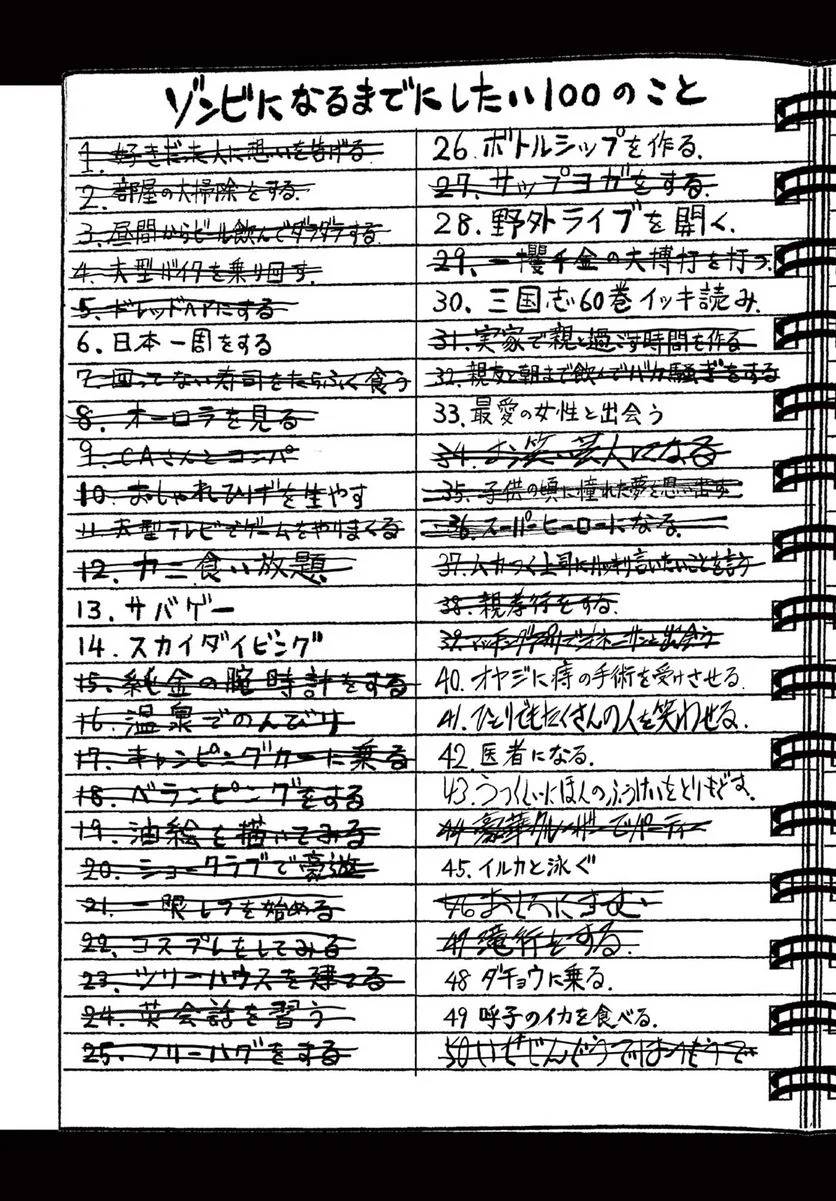 ゾンビになるまでにしたい100のこと
1. 好きだった人に想いを告げる
2. 部屋の大掃除をする.
3. 昼間からビール飲んでダラダラする
4. 大型バイクを乗り回す.
5. ドレッドヘアにする
6. 日本一周をする
7. 回ってない寿司をたらふく食う
8. オーロラを見る
9. CAさんとコンパ
10. おしゃれひげを生やす
11. 大型テレビでゲームをやりまくる
12. カニ食い放題.
13. サバゲー
14. スカイダイビング
15. 純金の腕時計をする
16. 温泉でのんびり
17. キャンピングカーに乗る
18. ベランピングをする
19. 油絵を描いてみる
20. ショークラブで豪遊
21. 一眼レフを始める
22. コスプレをしてみる
23. ツリーハウスを建てる
24. 英会話を習う
25. フリーハグをする
26. ボトルシップを作る.
27. サップヨガをする.
28. 野外ライブを開く.
29. 一攫千金の大博打を打つ.
30. 三国志60巻イッキ読み.
31. 実家で親と過ごす時間を作る
32. 親友と朝まで飲んでバカ騒ぎをする
33. 最愛の女性と出会う
34. お笑い芸人になる
35. 子供の頃に憧れた夢を思い出す
36. スーパーヒーローになる.
37. ムカつく上司にハッキリ言いたいことを言う
38. 親孝行をする.
39. で と出会う
40. オヤジに痔の手術を受けさせる.
41. ひとりでもたくさんの人を笑わせる.
42. 医者になる.
43. うつくしいにほんのふうけいをとりもどす.
44 豪華クルーザーでパーティー
45. イルカと泳ぐ
46 おしろにすむ
47 滝行をする.
48 ダチョウに乗る.
49 呼子のイカを食べる.
50